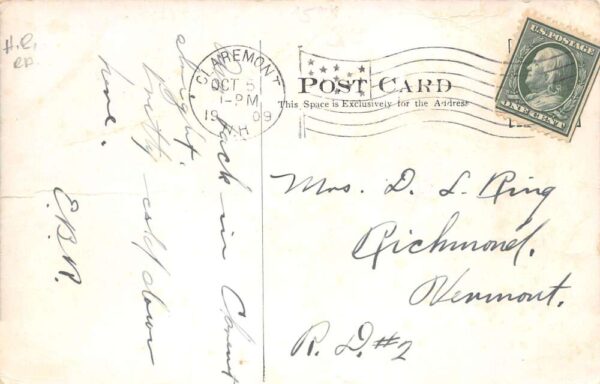 POST CARD
This Space is Exclusively for the Address
U.S. POSTAGE
ONE CENT
CLAREMONT
OCT 5
1-PM
1909
N.H.
back in
alright.
Pretty cold down
here.
E.B.R.
Mrs. D. L. Ring
Richmond,
Vermont.
R. D. #2